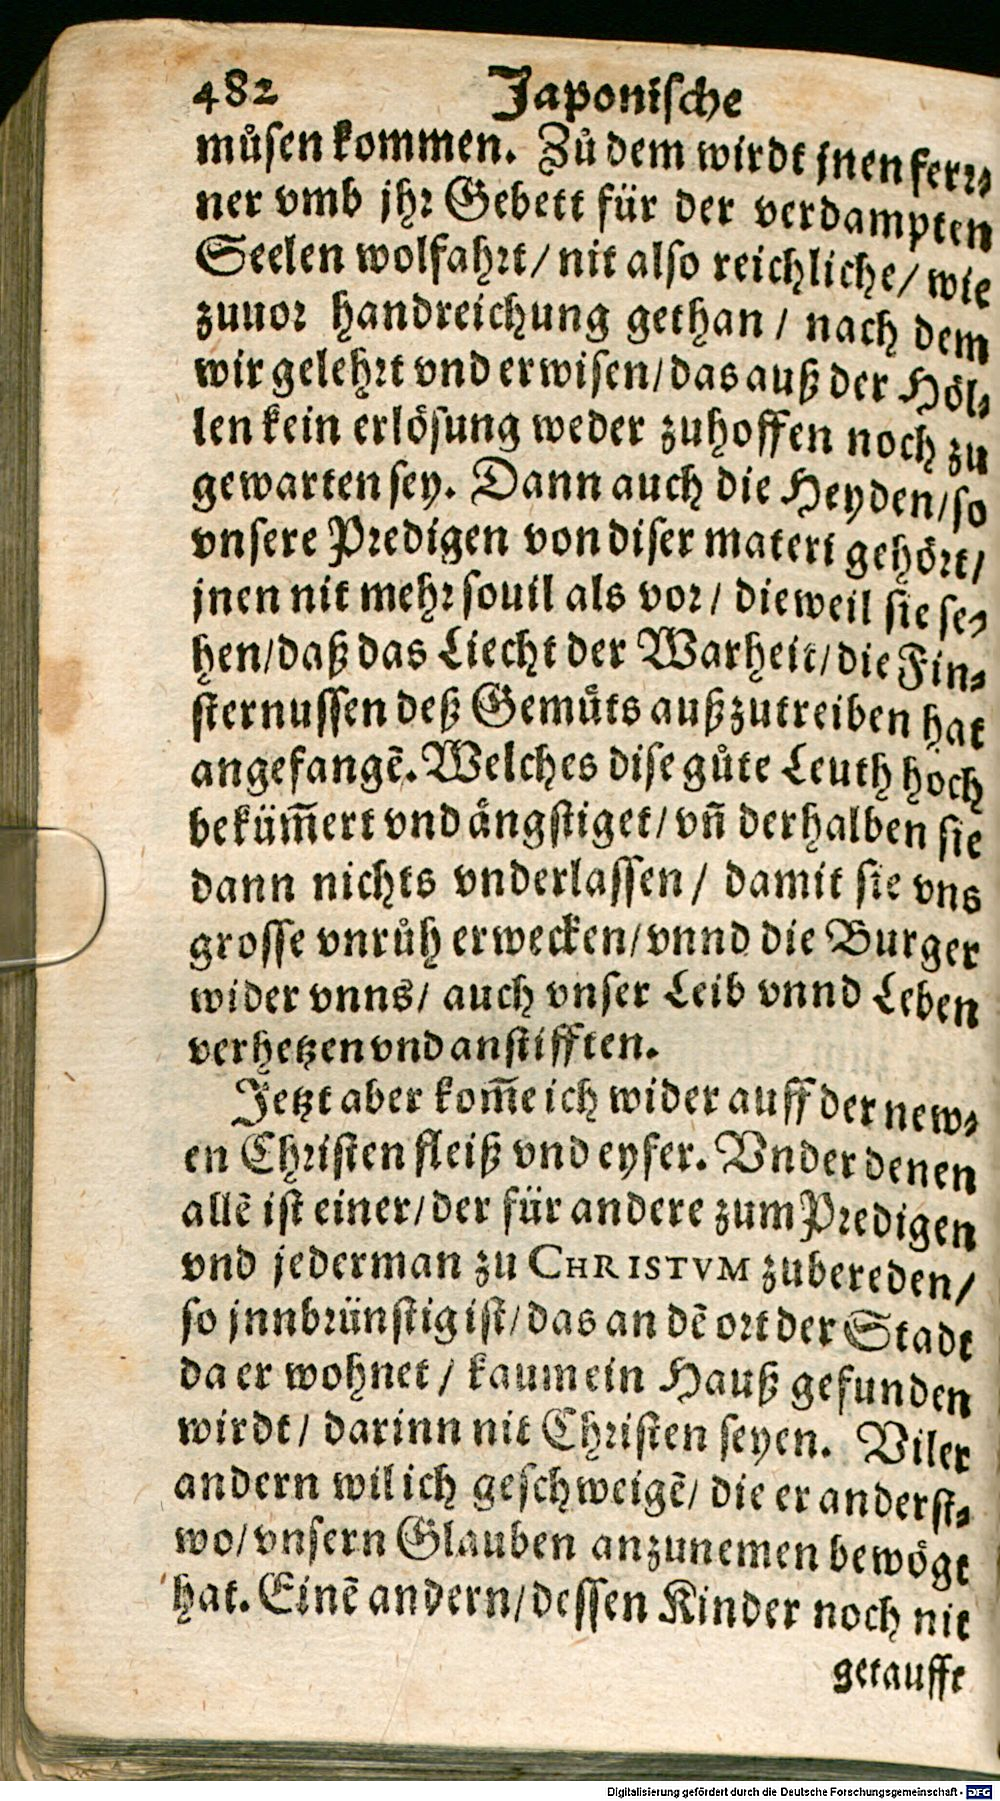 482 Japonische
müsen kommen. Zů dem wirdt jnen ferr⸗
ner vmb jhr Gebett für der verdampten
Seelen wolfahrt/ nit also reichliche/ wie
zuuor handreichung gethan / nach dem
wir gelehrt vnd erwisen/ das auß der Höl⸗
len kein erlösung weder zuhoffen noch zu
gewarten sey. Dann auch die Heyden/ so
vnsere Predigen von diser materi gehört/
jnen nit mehr souil als vor/ dieweil sie se⸗
hen/ daß das Liecht der Warheit/ die Fin⸗
sternussen deß Gemüts außzutreiben hat
angefangẽ. Welches dise gůte Leuth hoch
beküm̃ert vnd ängstiget/ vñ derhalben sie
dann nichts vnderlassen/ damit sie vns
grosse vnrůh erwecken/ vnnd die Burger
wider vnns/ auch vnser Leib vnnd Leben
verhetzen vnd anstifften.
Jetzt aber kom̃e ich wider auff der new⸗
en Christen fleiß vnd eyfer. Vnder denen
allẽ ist einer/ der für andere zum Predigen
vnd jederman zu CHRISTVM zubereden/
so jnnbrünstig ist/ das an dẽ ort der Stadt
da er wohnet/ kaum ein Hauß gefunden
wirdt/ darinn nit Christen seyen. Viler
andern wil ich geschweigẽ/ die er anderst⸗
wo/ vnsern Glauben anzunemen bewögt
hat. Einẽ andern/ dessen Kinder noch nit
getaufft
Digitalisierung gefördert durch die Deutsche Forschungsgemeinschaft - DFG